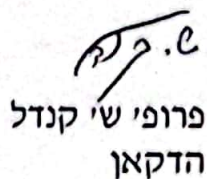 פרופ׳ ש׳ קנדל
הדקאן